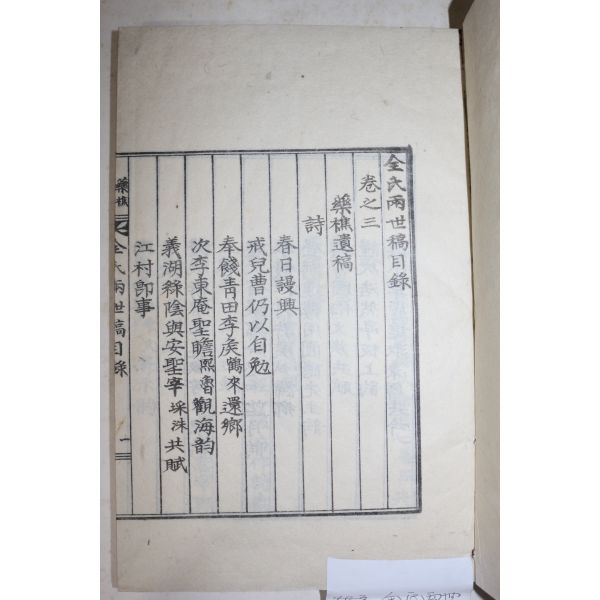 全氏兩世稿目錄
卷之三
藥樵遺稿
詩
春日謾興
戒兒曹仍以自勉
奉餞靑田李矦鶴來還鄉
次李東庵聖瞻熙魯觀海韵
義湖綠陰與安聖宰埰洙共賦
江村卽事
藥樵 全氏兩世稿目錄 一